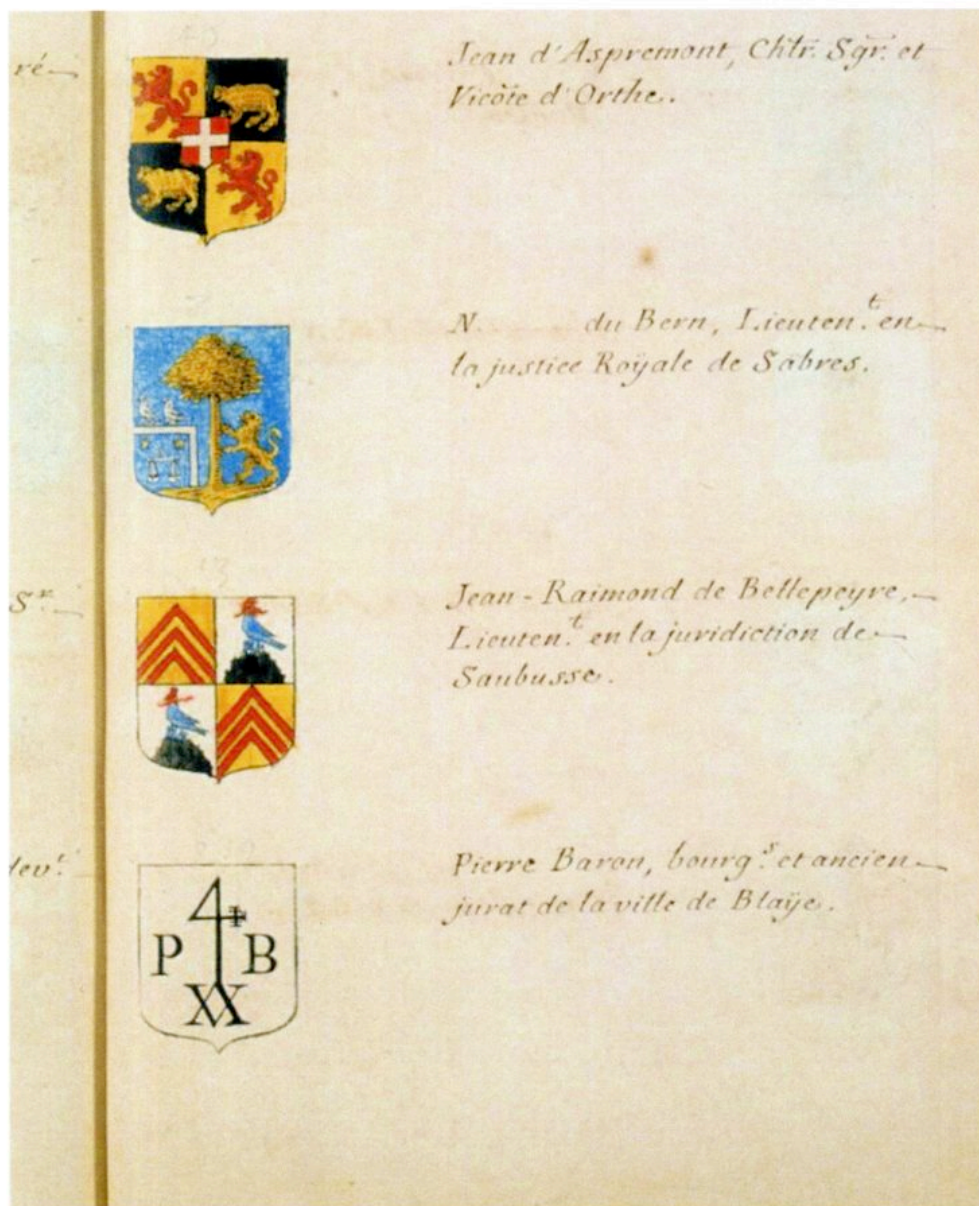 ré
Jean d'Aspremont, Chlr. Sgr. et
Vicôte d'Orthe.
N. du Bern, Lieuten.t en
la justice Roÿale de Sabres.
Sr.
Jean-Raimond de Bellepeyre,
Lieuten.t en la juridiction de
Saubusse.
devt.
Pierre Baron, bourg.s et ancien
jurat de la ville de Blaÿe.
4
P B